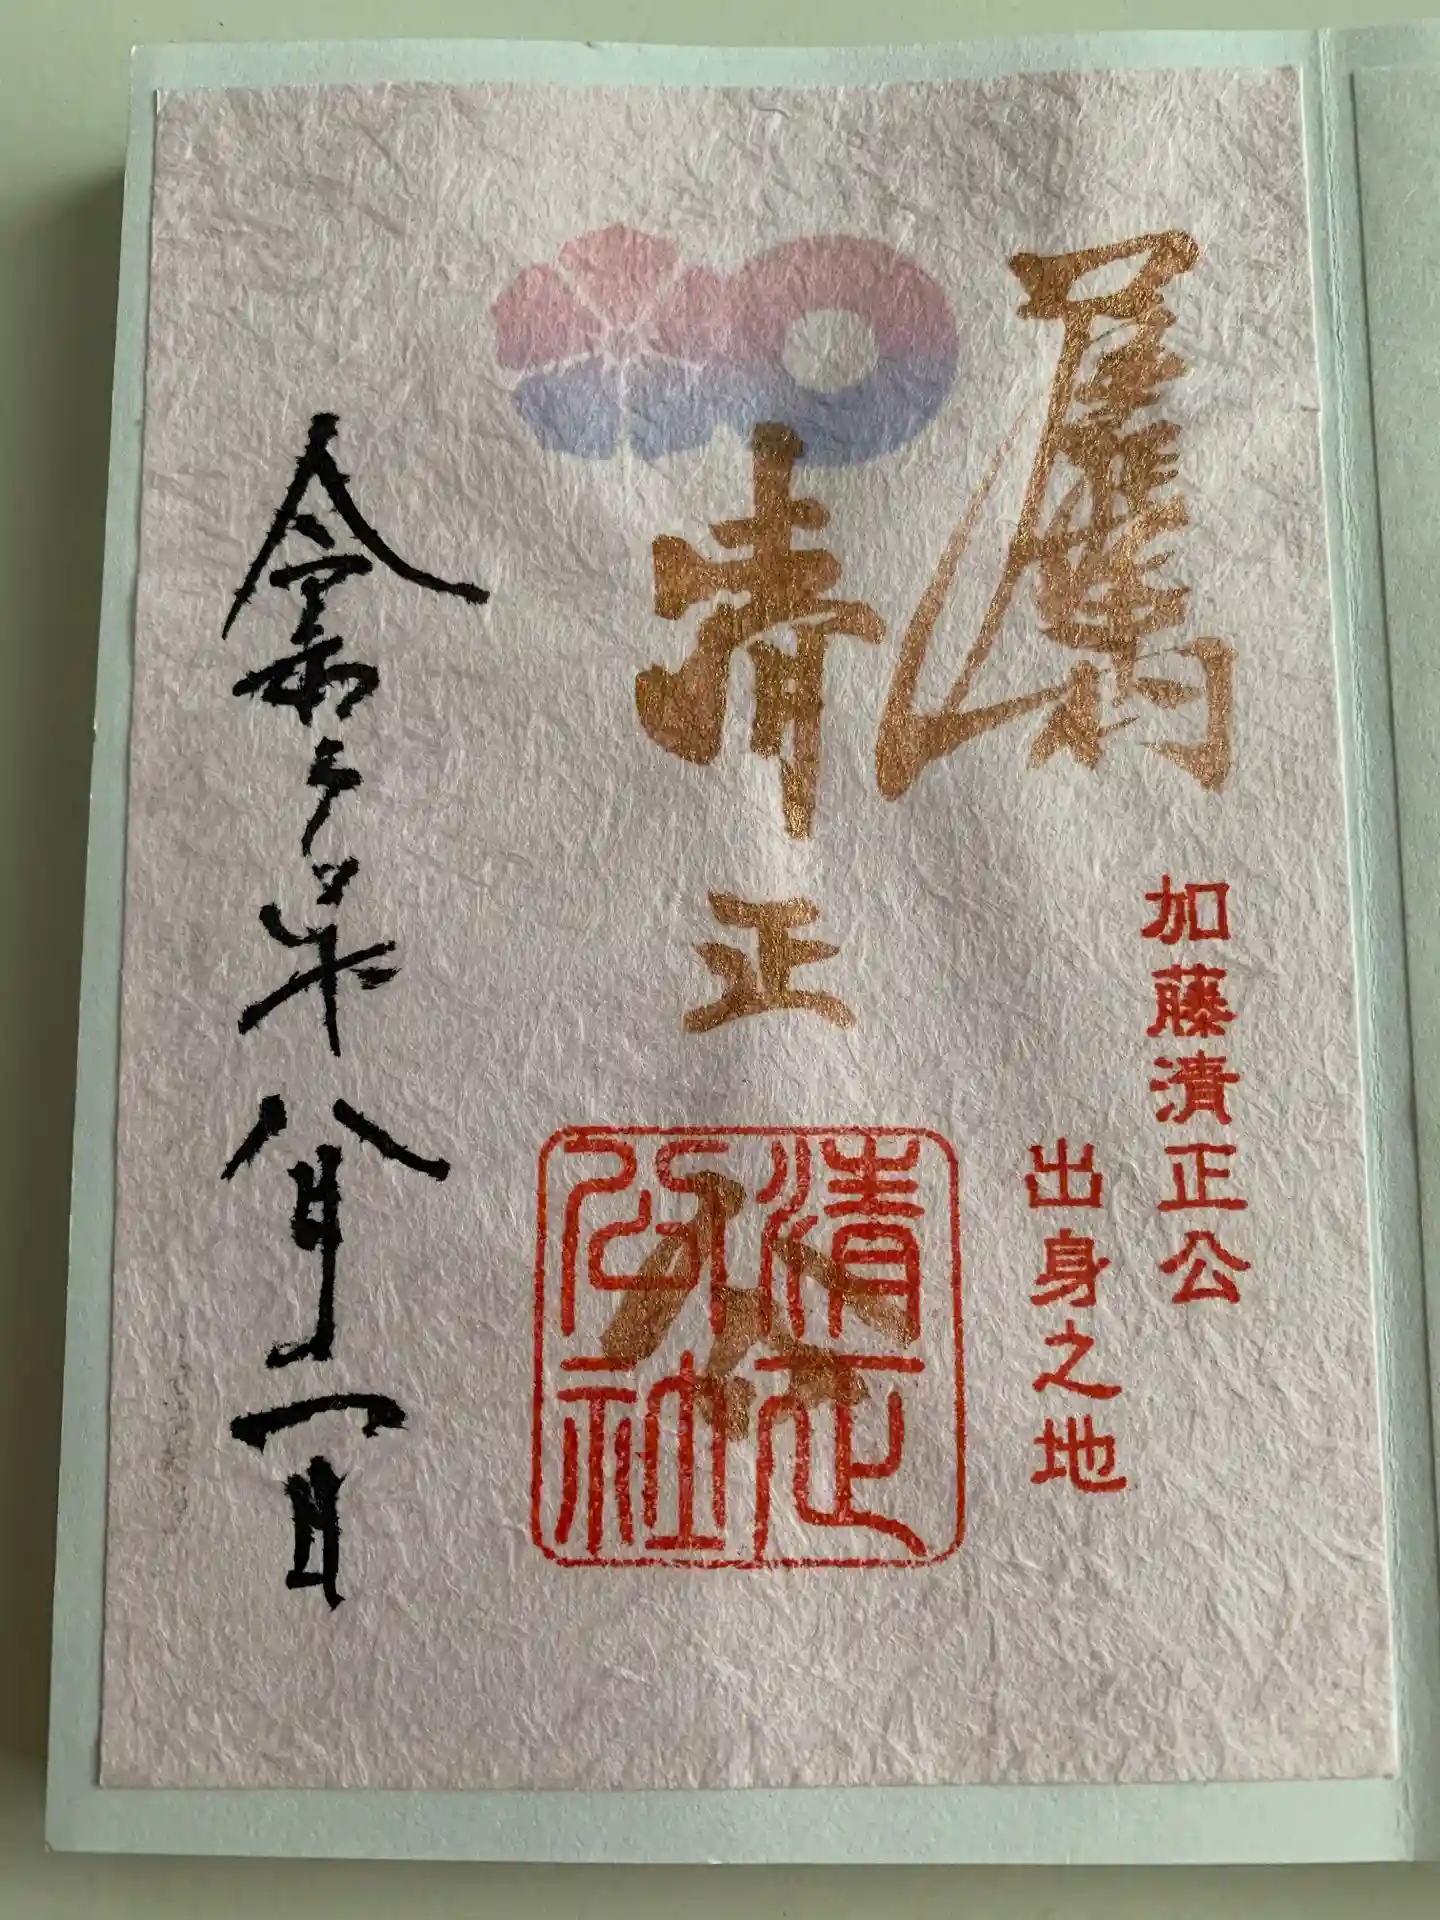 清正公
加藤清正公
出身之地
清正
公社
令和六年八月一日